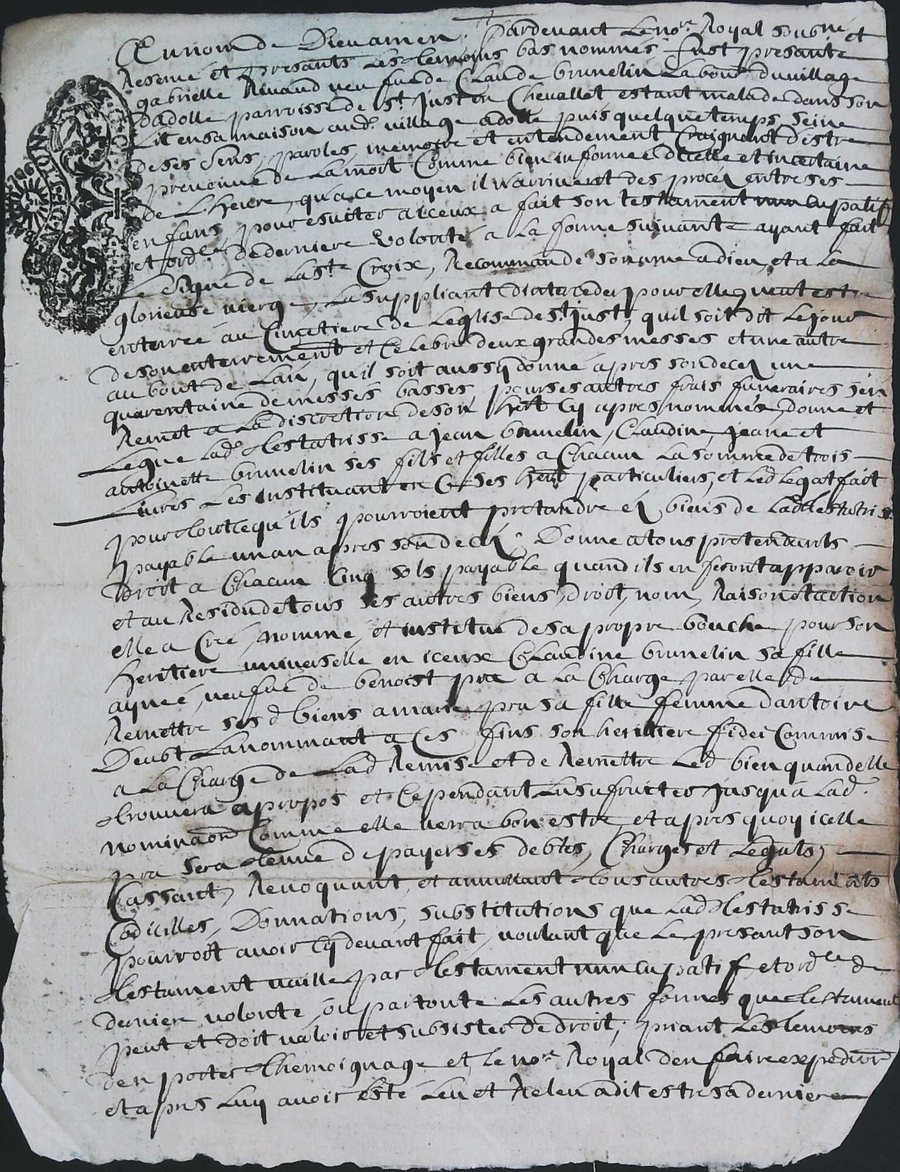 Au nom de Dieu amen. Pardevant le nore Royal sousné et
Reservé et presants les temoins bas nommés fust presante
gabrielle Rivaud veufve de Claude brunelin labour du village
dadolle parroisse de st Just en Chevallet estant malade dans son
Lit en sa maison aud. village adolle puis quelque temps, seine
de ses sens, paroles, memoire et entendement Craignant destre
prevenue de la mort Comme bien informee dicelle et incertaine
de L'heure, qua ce moyen il narrivent des proces entre ses
enfans, pour esviter a iceux a fait son testament nuncupatif
et ordce de derniere volonté a la forme suivante ayant fait
Le signe de la ste Croix, Recommande son ame a dieu, et a la
glorieuse vierge, La suppliant dinterceder pour elle, veut estre
enterrée au Cimetiere de Leglise de st Just, quil soit dit le jour
de son enterrement et Celebré deux grandes messes et une autre
au bout de Lan, quil soit aussy donné apres son decez une
quarentaine de messes basses, pour ses autres frais funeraires sen
Remet a la discretion de son hert Cy apres nommée, donne et
Legue lad. testatrisse a jean brunelin, Claudine, Jeane et
antoinette brunelin ses fils et filles a Chacun la somme de trois
Livres Les instituant en Ce ses hers particuliers, et led Legat fait
pour tout ce quils pourroient pretandre ez biens de lad testatrisse
payable un an apres son decez. Donne a tous pretendants
droit a Chacun Cinq sols payable quand ils en feront apparoir
et au Residu de tous ses autres biens, droit, nom, Raison et action
elle a Cree, nommé, et institué de sa propre bouche pour son
heritiere universelle en iceux Claudine brunelin sa fille
aynée, veufve de benoist pra a la Charge par elle de
Remettre ses d biens a marie pra sa fille femme dantoine
La nommant a Ces fins son heritiere fidei Commise
a la Charge de lad Remise et de Remettre led bien quand elle
trouvera a propos et Cependant Lusufruct jusqua lad.
nominaon Comme elle verra bon estre et apres quoy icelle
pra sera tenue de payer ses debtes, Charges et Legats,
Cassant, Revoquant, et annullant tous autres testaments
Codicilles, Donnations, substitutions que lad testatrisse
pourroit avoir Cy devant fait, voulant que Le presant son
testament vaille par testament nuncupatif et ordce de
derniere volonté, ou par toute Les autres formes que testament
peut et doit valoir et subsister de droit, priant Les temoins
den porter themoignage et le nore Royal den faire expedition
et apres Luy avoir esté Leu et Releu a dit estre sa derniere